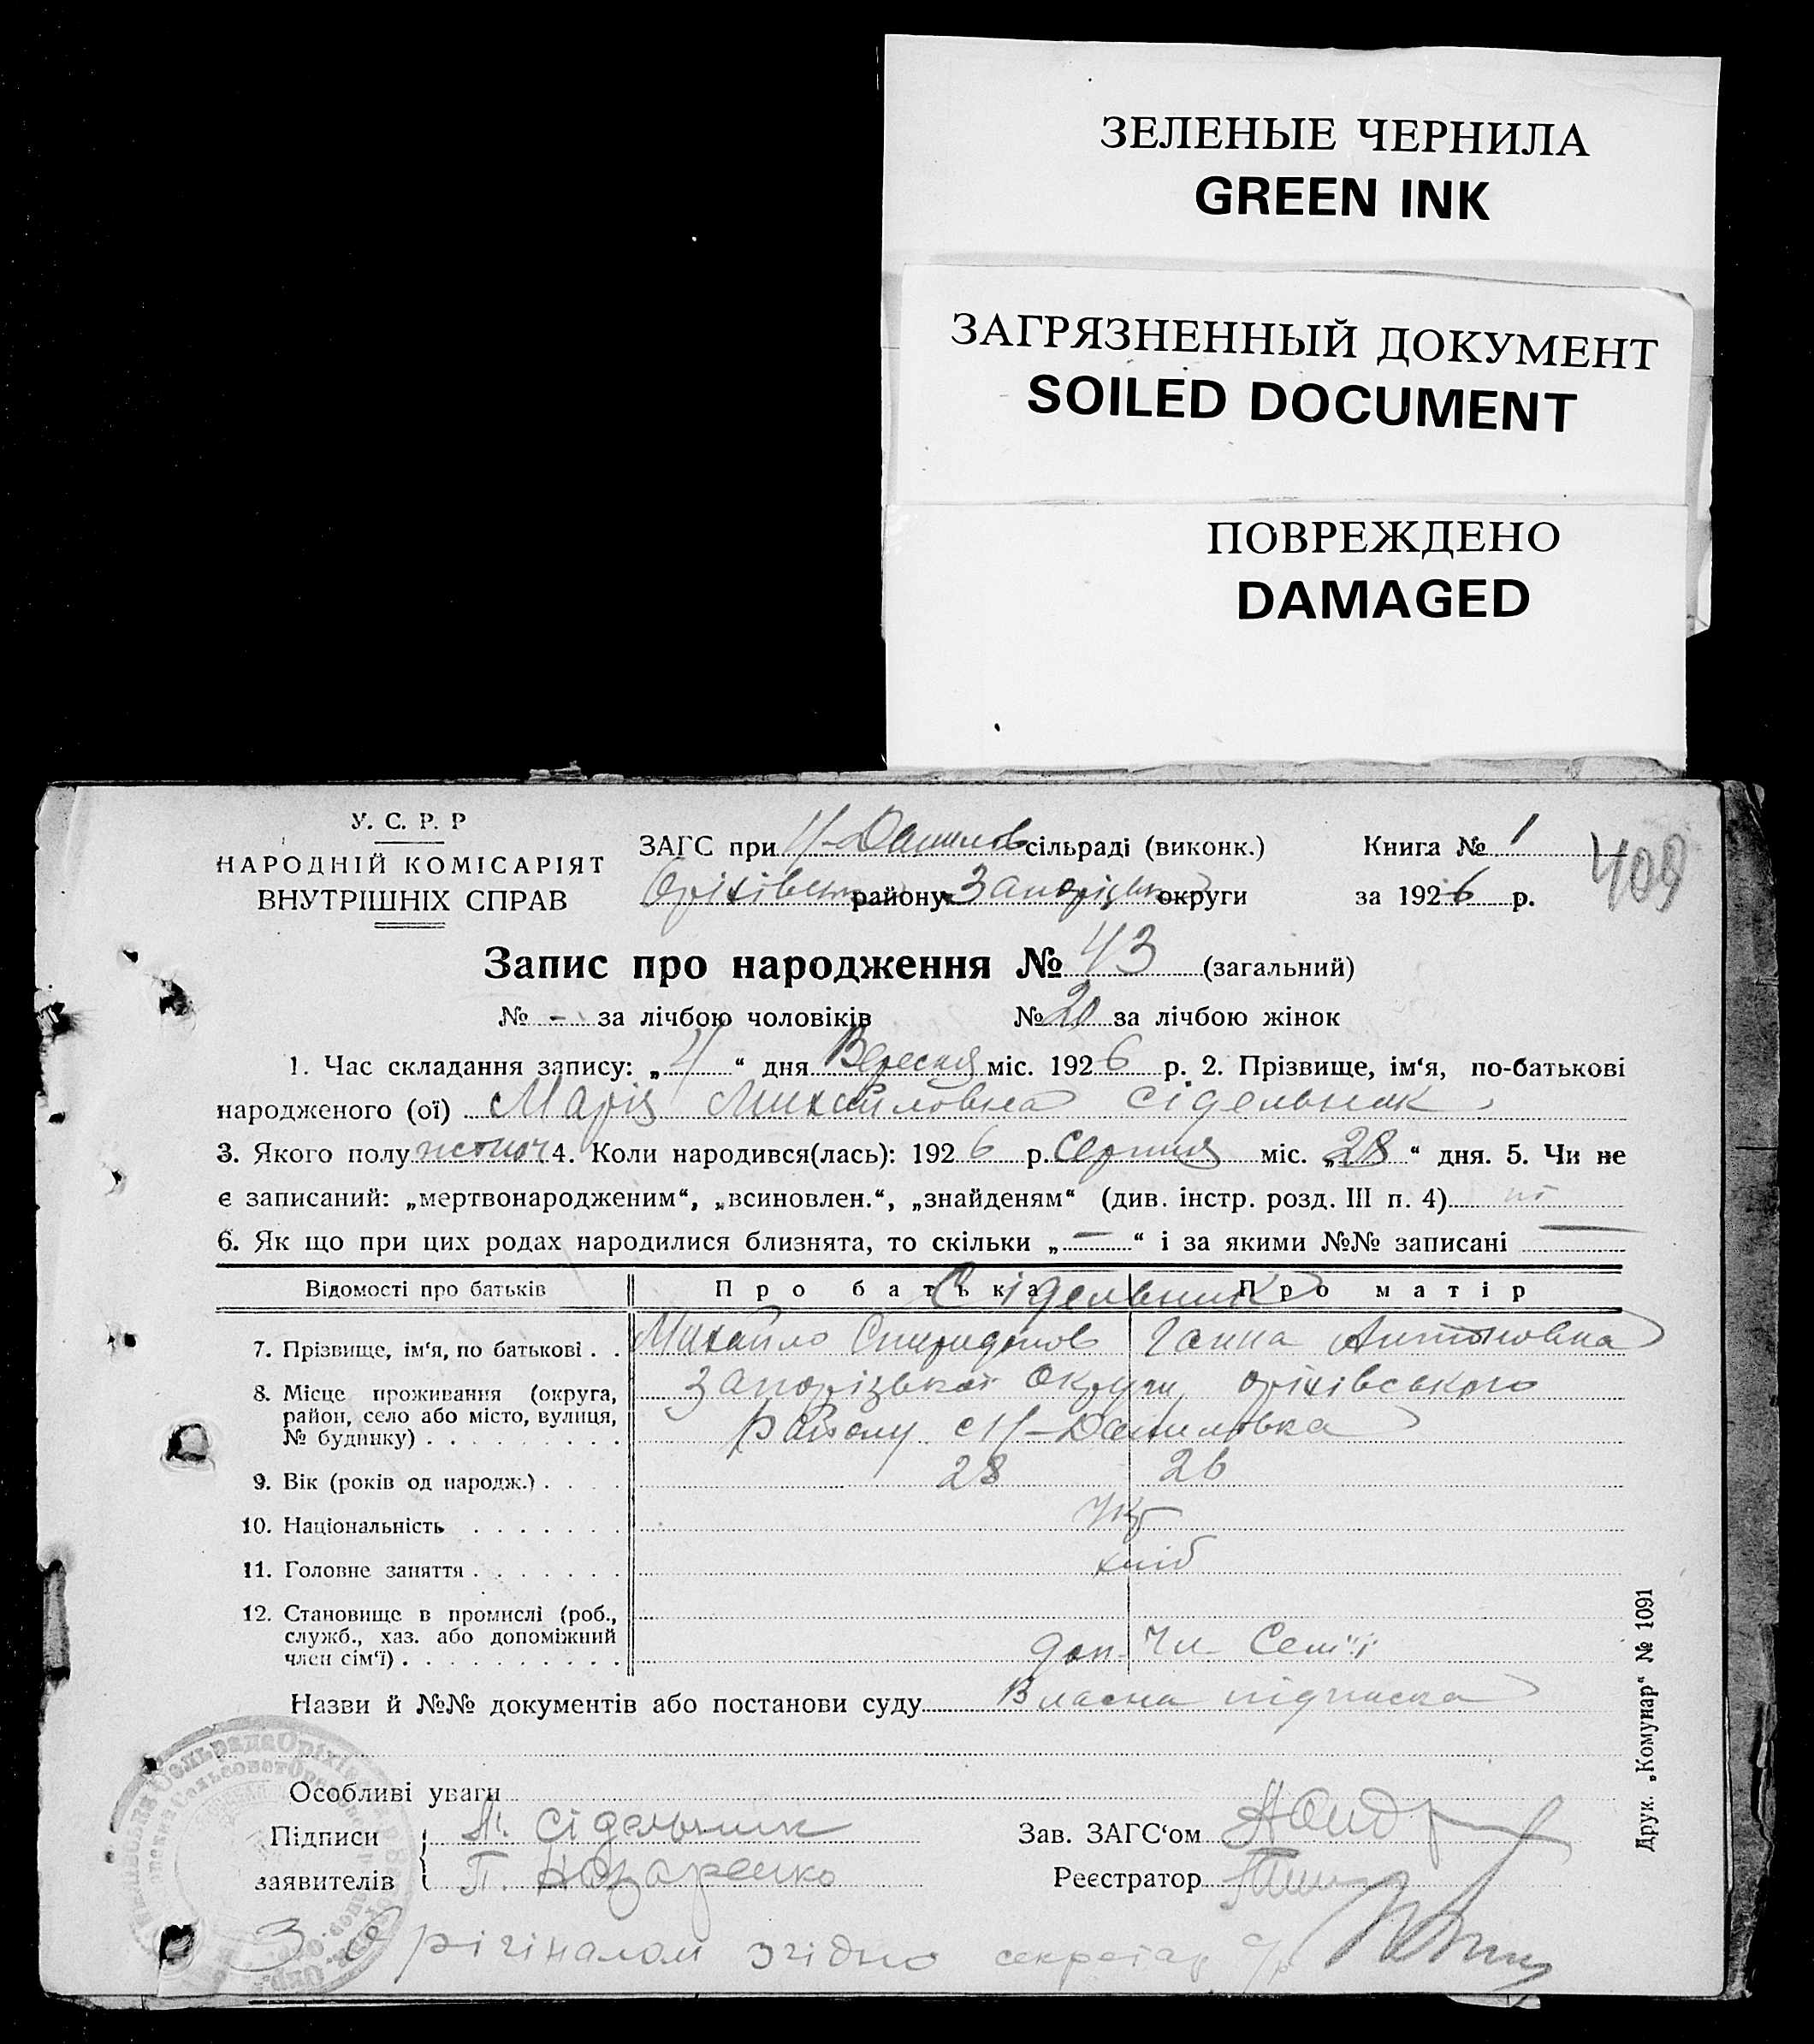 ЗЕЛЕНЫЕ ЧЕРНИЛА
GREEN INK
ЗАГРЯЗНЕННЫЙ ДОКУМЕНТ
SOILED DOCUMENT
ПОВРЕЖДЕНО
DAMAGED
У. С. Р. Р
НАРОДНІЙ КОМІСАРІЯТ
ВНУТРІШНІХ СПРАВ
ЗАГС при Н-Данилов сільраді (виконк.) Книга № 1
Оріхівськ району Запорізьк округи за 1926 р.
409
Запис про народження № 43 (загальний)
№ - за лічбою чоловіків № 20 за лічбою жінок
1. Час складання запису: „4“ дня Вересня міс. 1926 р. 2. Прізвище, ім‘я, по-батькові
народженого (ої) Марія Михайловна Сідельник
3. Якого полу жіноч 4. Коли народився(лась): 1926 р. Серпня міс. „28“ дня. 5. Чи не
є записаний: „мертвонародженим“, „всиновлен.“, „знайденям“ (див. інстр. розд. III п. 4) ні
6. Як що при цих родах народилися близнята, то скільки „—“ і за якими №№ записані —
Відомості про батьків Про батька Про матір
Сідельник
7. Прізвище, ім‘я, по батькові . . Михайло Спиридонов Ганна Антоновна
8. Місце проживання (округа, район, село або місто, вулиця, № будинку) . . . Запорізької Округи, оріхівського
району с Н-Даниловка
9. Вік (років од народж.) . . . . 28 26
10. Національність . . . . . . . Укр
11. Головне заняття . . . . . . . хліб
12. Становище в промислі (роб.,
служб., хаз. або допоміжний
член сім‘ї) . . . . . . . . . . доп. Чл. Сем'ї
Назви й №№ документів або постанови суду Власна підписка
Особливі уваги
Підписи М. Сідельник Зав. ЗАГС‘ом
заявителів П. Назаренко Реєстратор
З Орігіналом згідно секретар
Друк. „Комунар“ № 1091